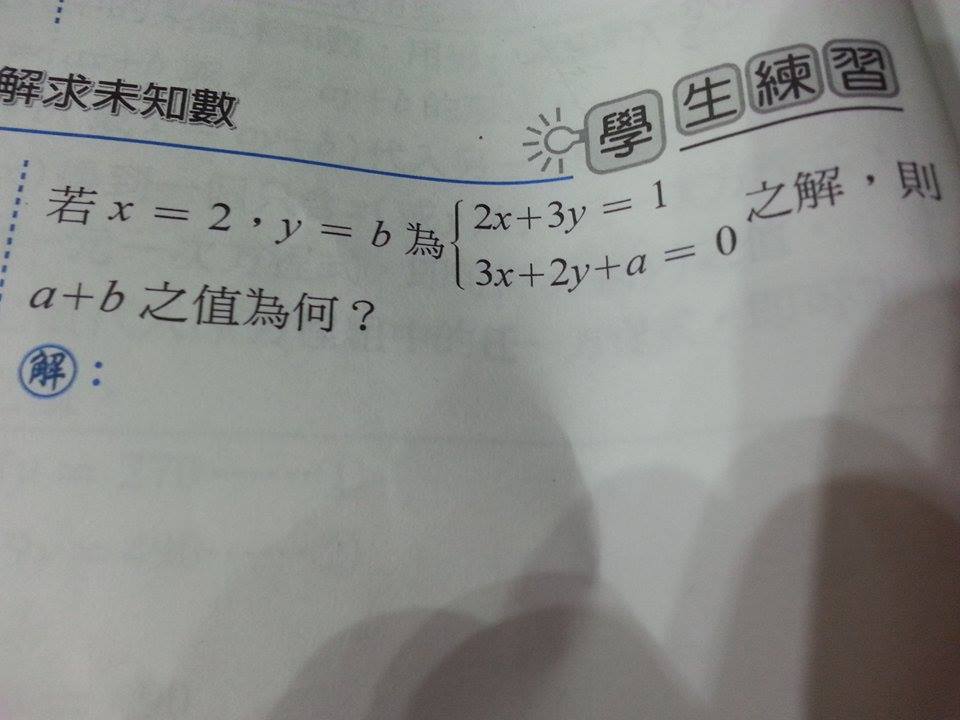 解求未知數
學生練習
若 x = 2，y = b 為 { 2x+3y = 1
3x+2y+a = 0 之解，則
a+b 之值為何？
解：